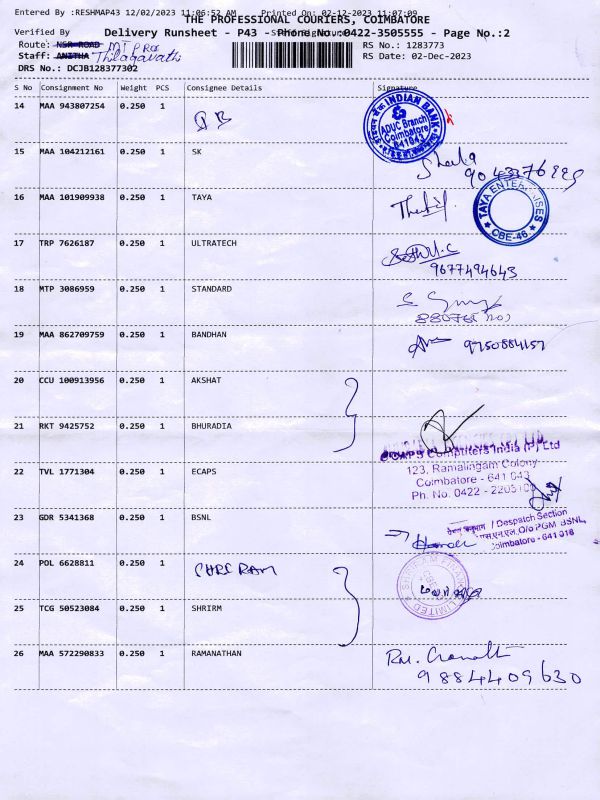 Entered By :RESHMAP43 12/02/2023 11:06:52 AM Printed On: 02-12-2023 11:07:09
THE PROFESSIONAL COURIERS, COIMBATORE
Verified By
Delivery Runsheet - P43 - Phone No.:0422-3505555 - Page No.:2
Route: NSR ROAD MTP Road
RS No.: 1283773
Staff: ANITHA Thilagavathi
RS Date: 02-Dec-2023
DRS No.: DCJB128377302
S No Consignment No Weight PCS Consignee Details Signature
14 MAA 943807254 0.250 1
INDIAN BANK
ADUC Branch
Coimbatore
641043
15 MAA 104212161 0.250 1 SK
16 MAA 101909938 0.250 1 TAYA
TAYA ENTERPRISES
CBE-46
17 TRP 7626187 0.250 1 ULTRATECH
9677494643
18 MTP 3086959 0.250 1 STANDARD
19 MAA 862709759 0.250 1 BANDHAN
9750884157
20 CCU 100913956 0.250 1 AKSHAT
21 RKT 9425752 0.250 1 BHURADIA
Computers India (P) Ltd
123, Ramalingam Colony
Coimbatore - 641 043
Ph. No. 0422 -
22 TVL 1771304 0.250 1 ECAPS
23 GDR 5341368 0.250 1 BSNL
/ Despatch Section
O/o PGM BSNL,
Coimbatore - 641 018
24 POL 6628811 0.250 1 SHRI RAM
SHRIRAM FINANCE LIMITED
25 TCG 50523084 0.250 1 SHRIRM
26 MAA 572290833 0.250 1 RAMANATHAN
9884409630